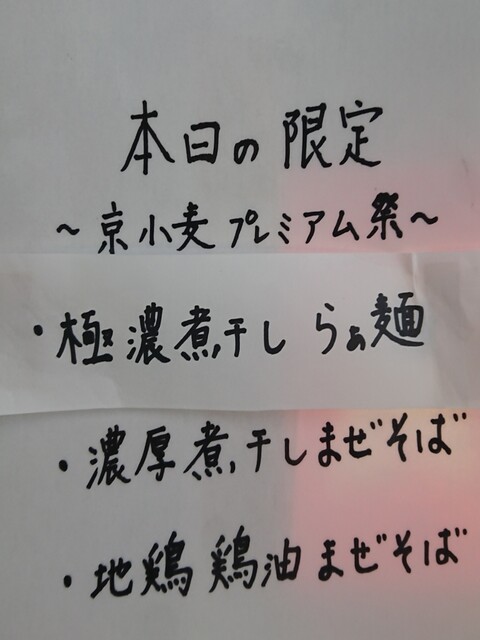 本日の限定
～京小麦プレミアム祭～
・極濃煮干しらぁ麺
・濃厚煮干しまぜそば
・地鶏鶏油まぜそば